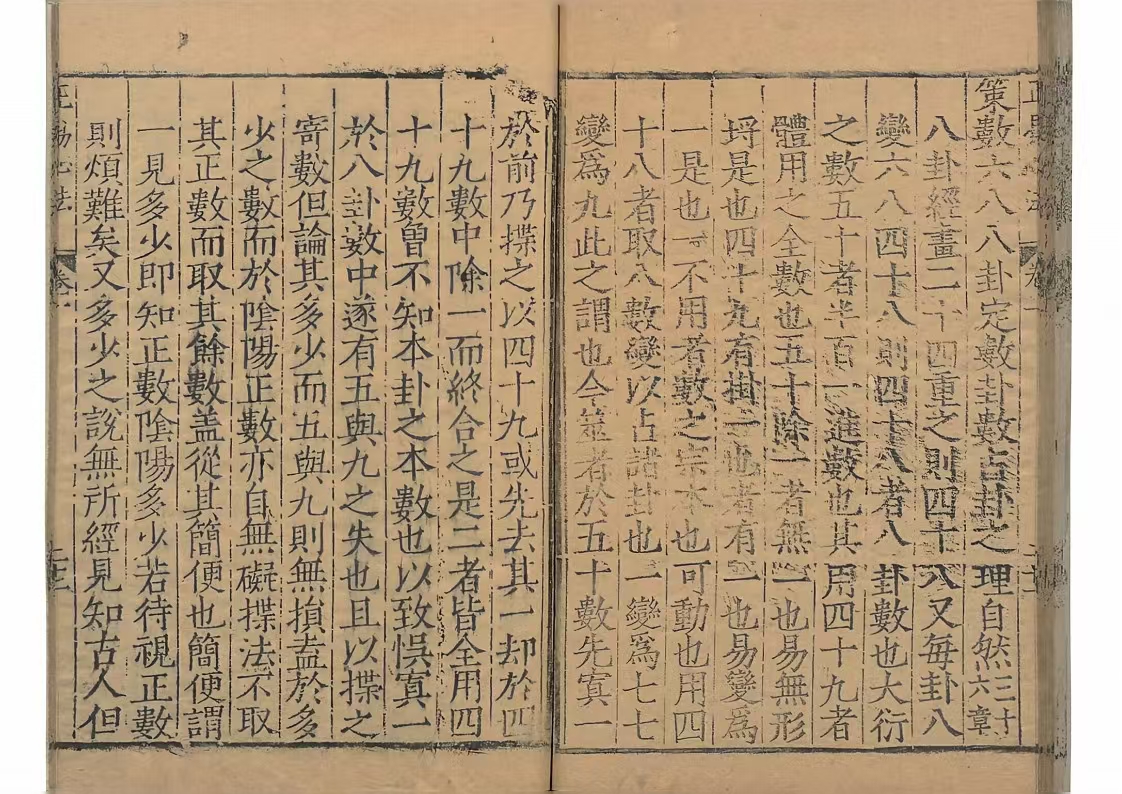 正易心法 卷一
策數六八八卦定數卦數占卦之理自然三十六章
八卦經畫二十四重之則四十八又每卦八
變六八四十八則四十八者八卦數也大衍
之數五十者半百一進數也其用四十九者
體用之全數也五十除一者無一也易無形
埒是也四十九有掛一也者有一也易變爲
一是也一不用者數之宗本也可動也用四
十八者取八數變以占諸卦也一變爲七七
變爲九此之謂也今筮者於五十數先寘一
於前乃揲之以四十九或先去其一却於四
十九數中除一而終合之是二者皆全用四
十九數曽不知本卦之本數也以致悮寘一
於八卦數中遂有五與九之失也且以揲之
寄數但論其多少而五與九則無損益於多
少之數而於隂陽正數亦自無礙揲法不取
其正數而取其餘數盖從其簡便也簡便謂
一見多少即知正數隂陽多少若待視正數
則煩難矣又多少之說無所經見知古人但
正易心法 卷一